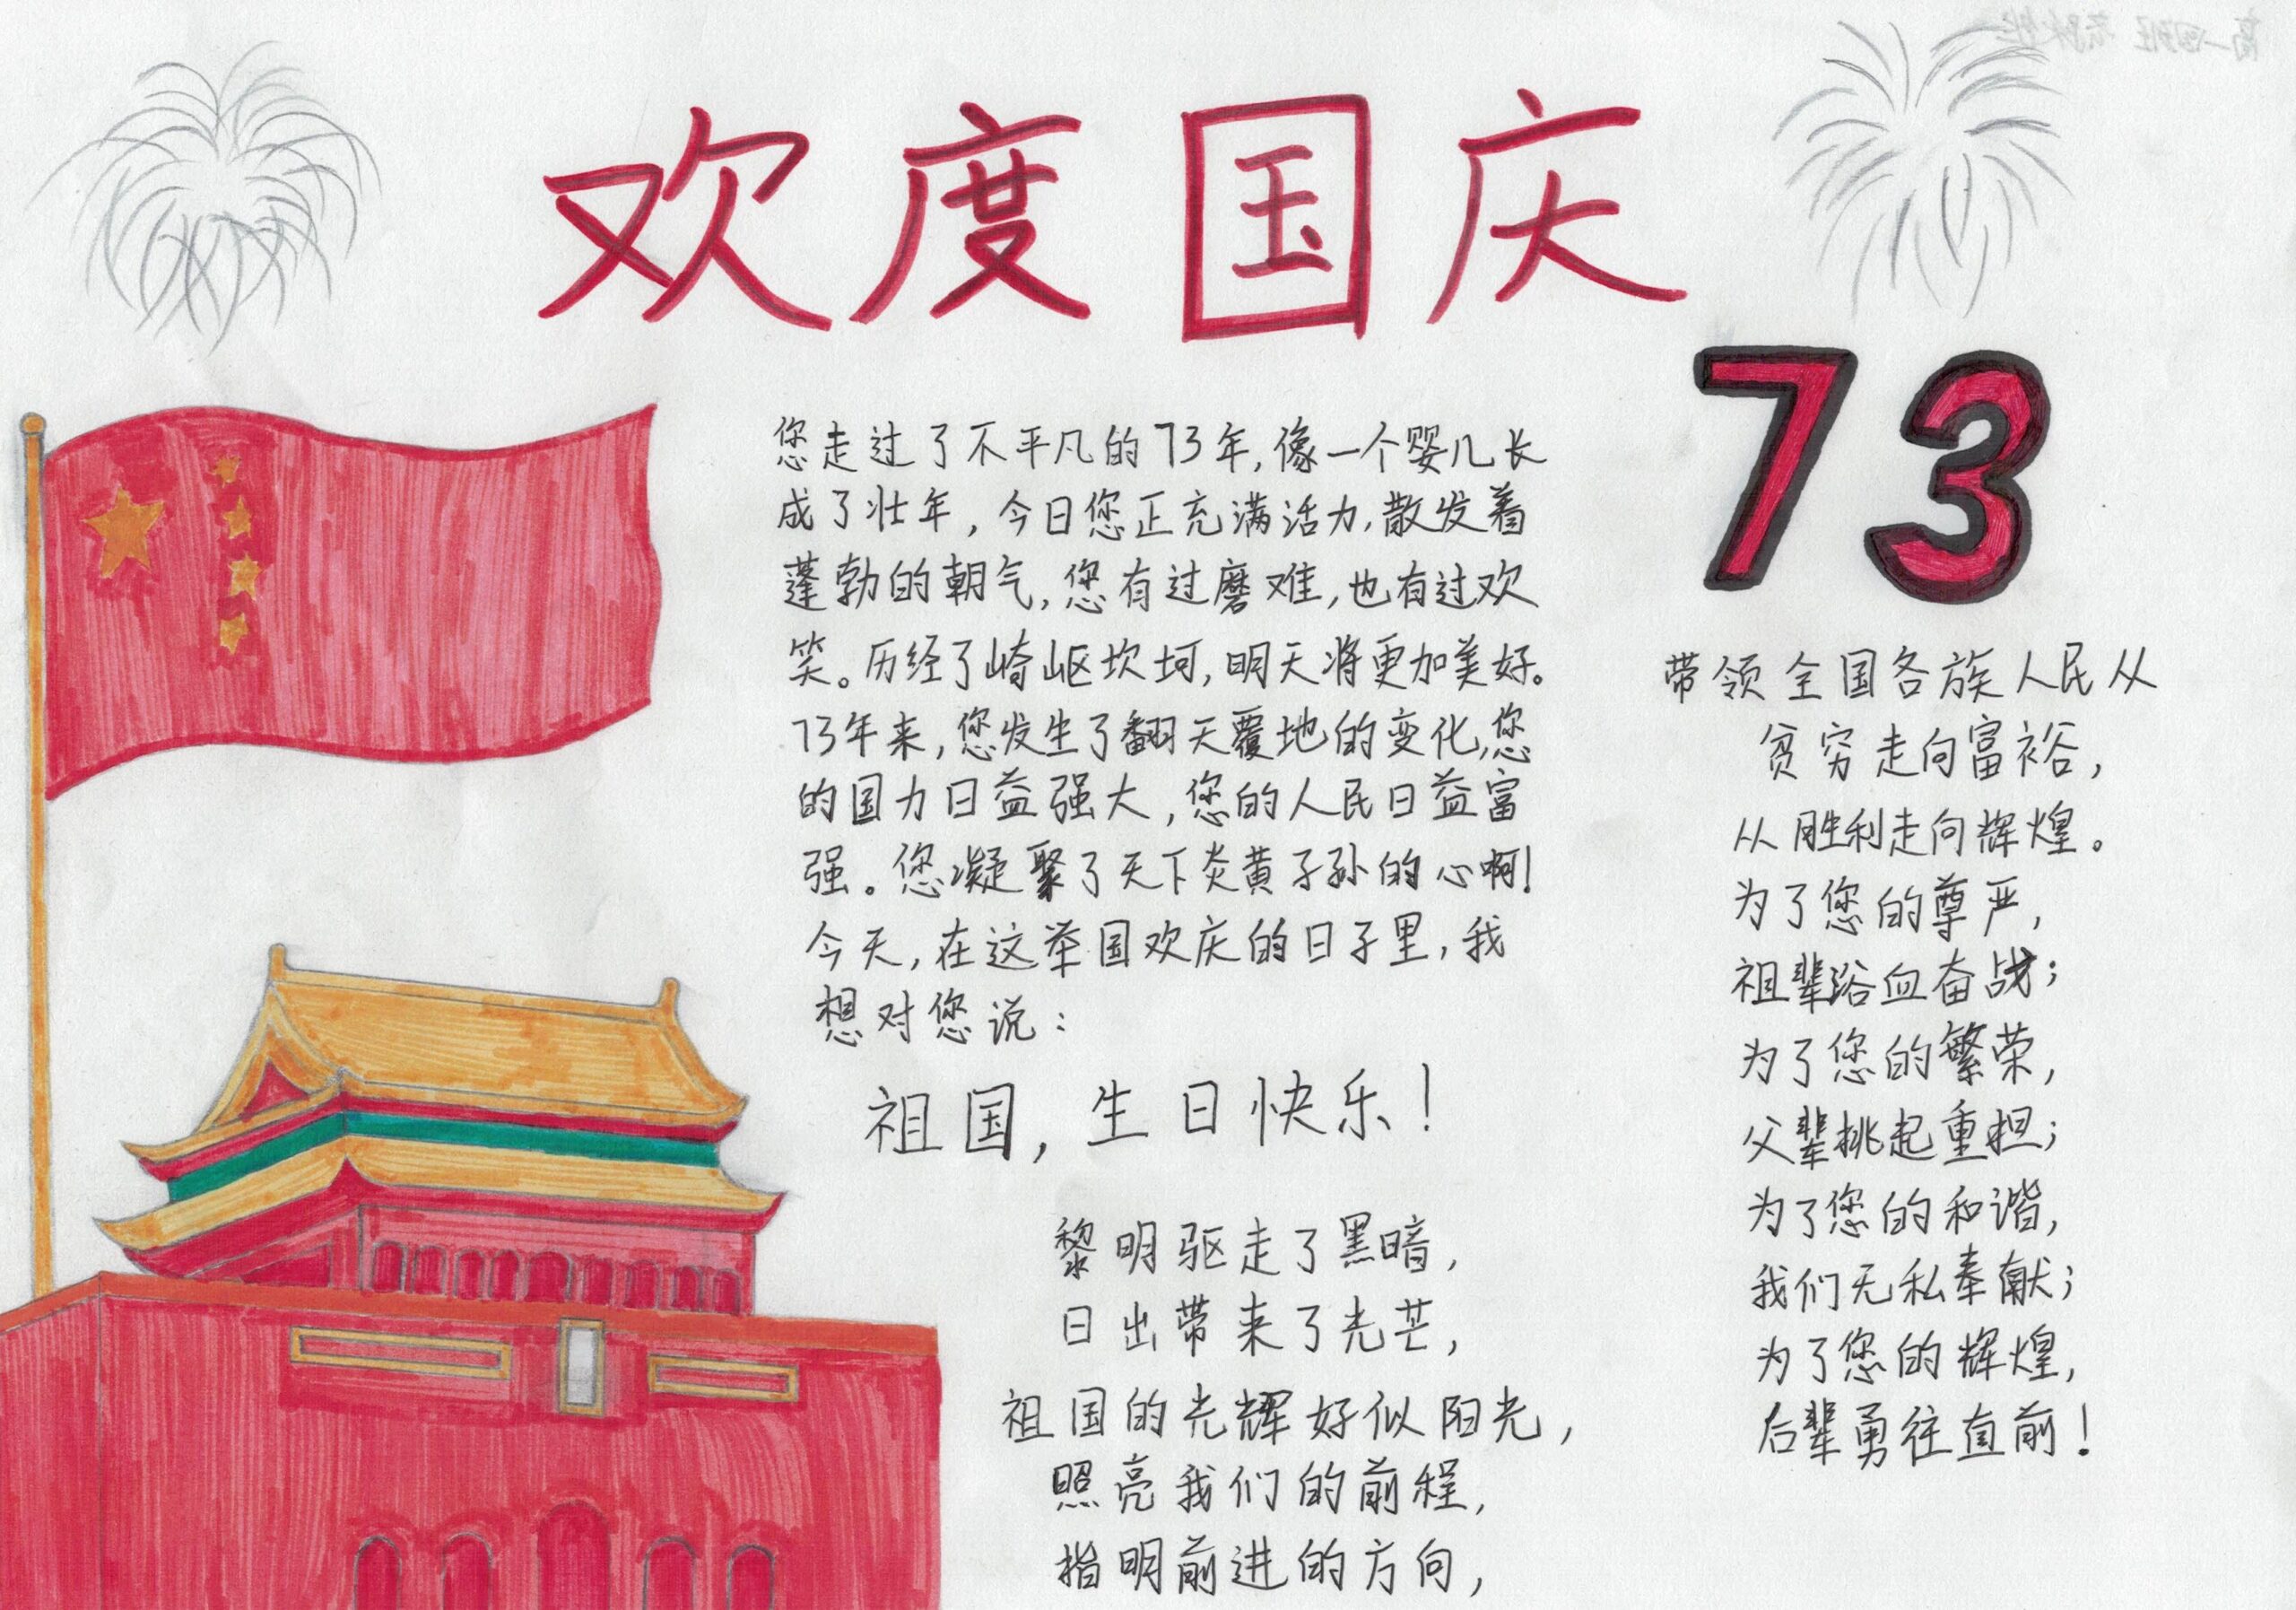 欢度国庆
73
您走过了不平凡的73年,像一个婴儿长
成了壮年,今日您正充满活力,散发着
蓬勃的朝气,您有过磨难,也有过欢
笑。历经了崎岖坎坷,明天将更加美好。
73年来,您发生了翻天覆地的变化,您
的国力日益强大,您的人民日益富
强。您凝聚了天下炎黄子孙的心啊!
今天,在这举国欢庆的日子里,我
想对您说:
祖国,生日快乐!
黎明驱走了黑暗,
日出带来了光芒,
祖国的光辉好似阳光,
照亮我们的前程,
指明前进的方向,
带领全国各族人民从
贫穷走向富裕,
从胜利走向辉煌。
为了您的尊严,
祖辈浴血奋战;
为了您的繁荣,
父辈挑起重担;
为了您的和谐,
我们无私奉献;
为了您的辉煌,
后辈勇往直前!